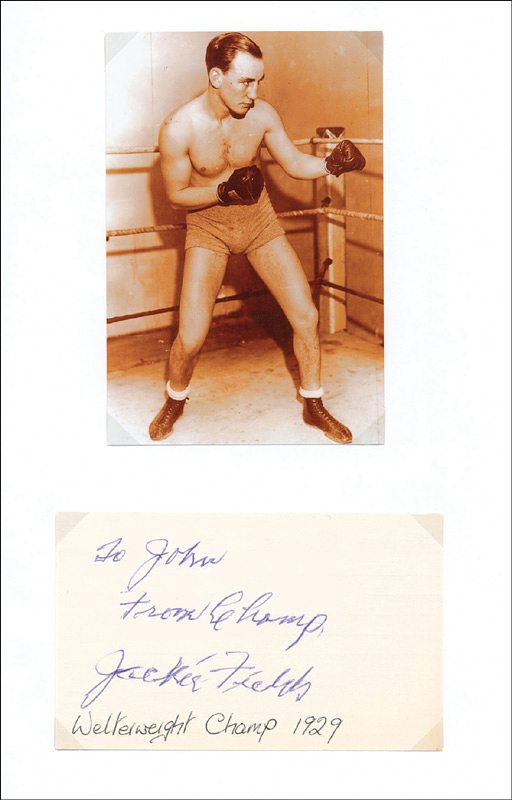 To John
From Champ,
Jackie Fields
Welterweight Champ 1929